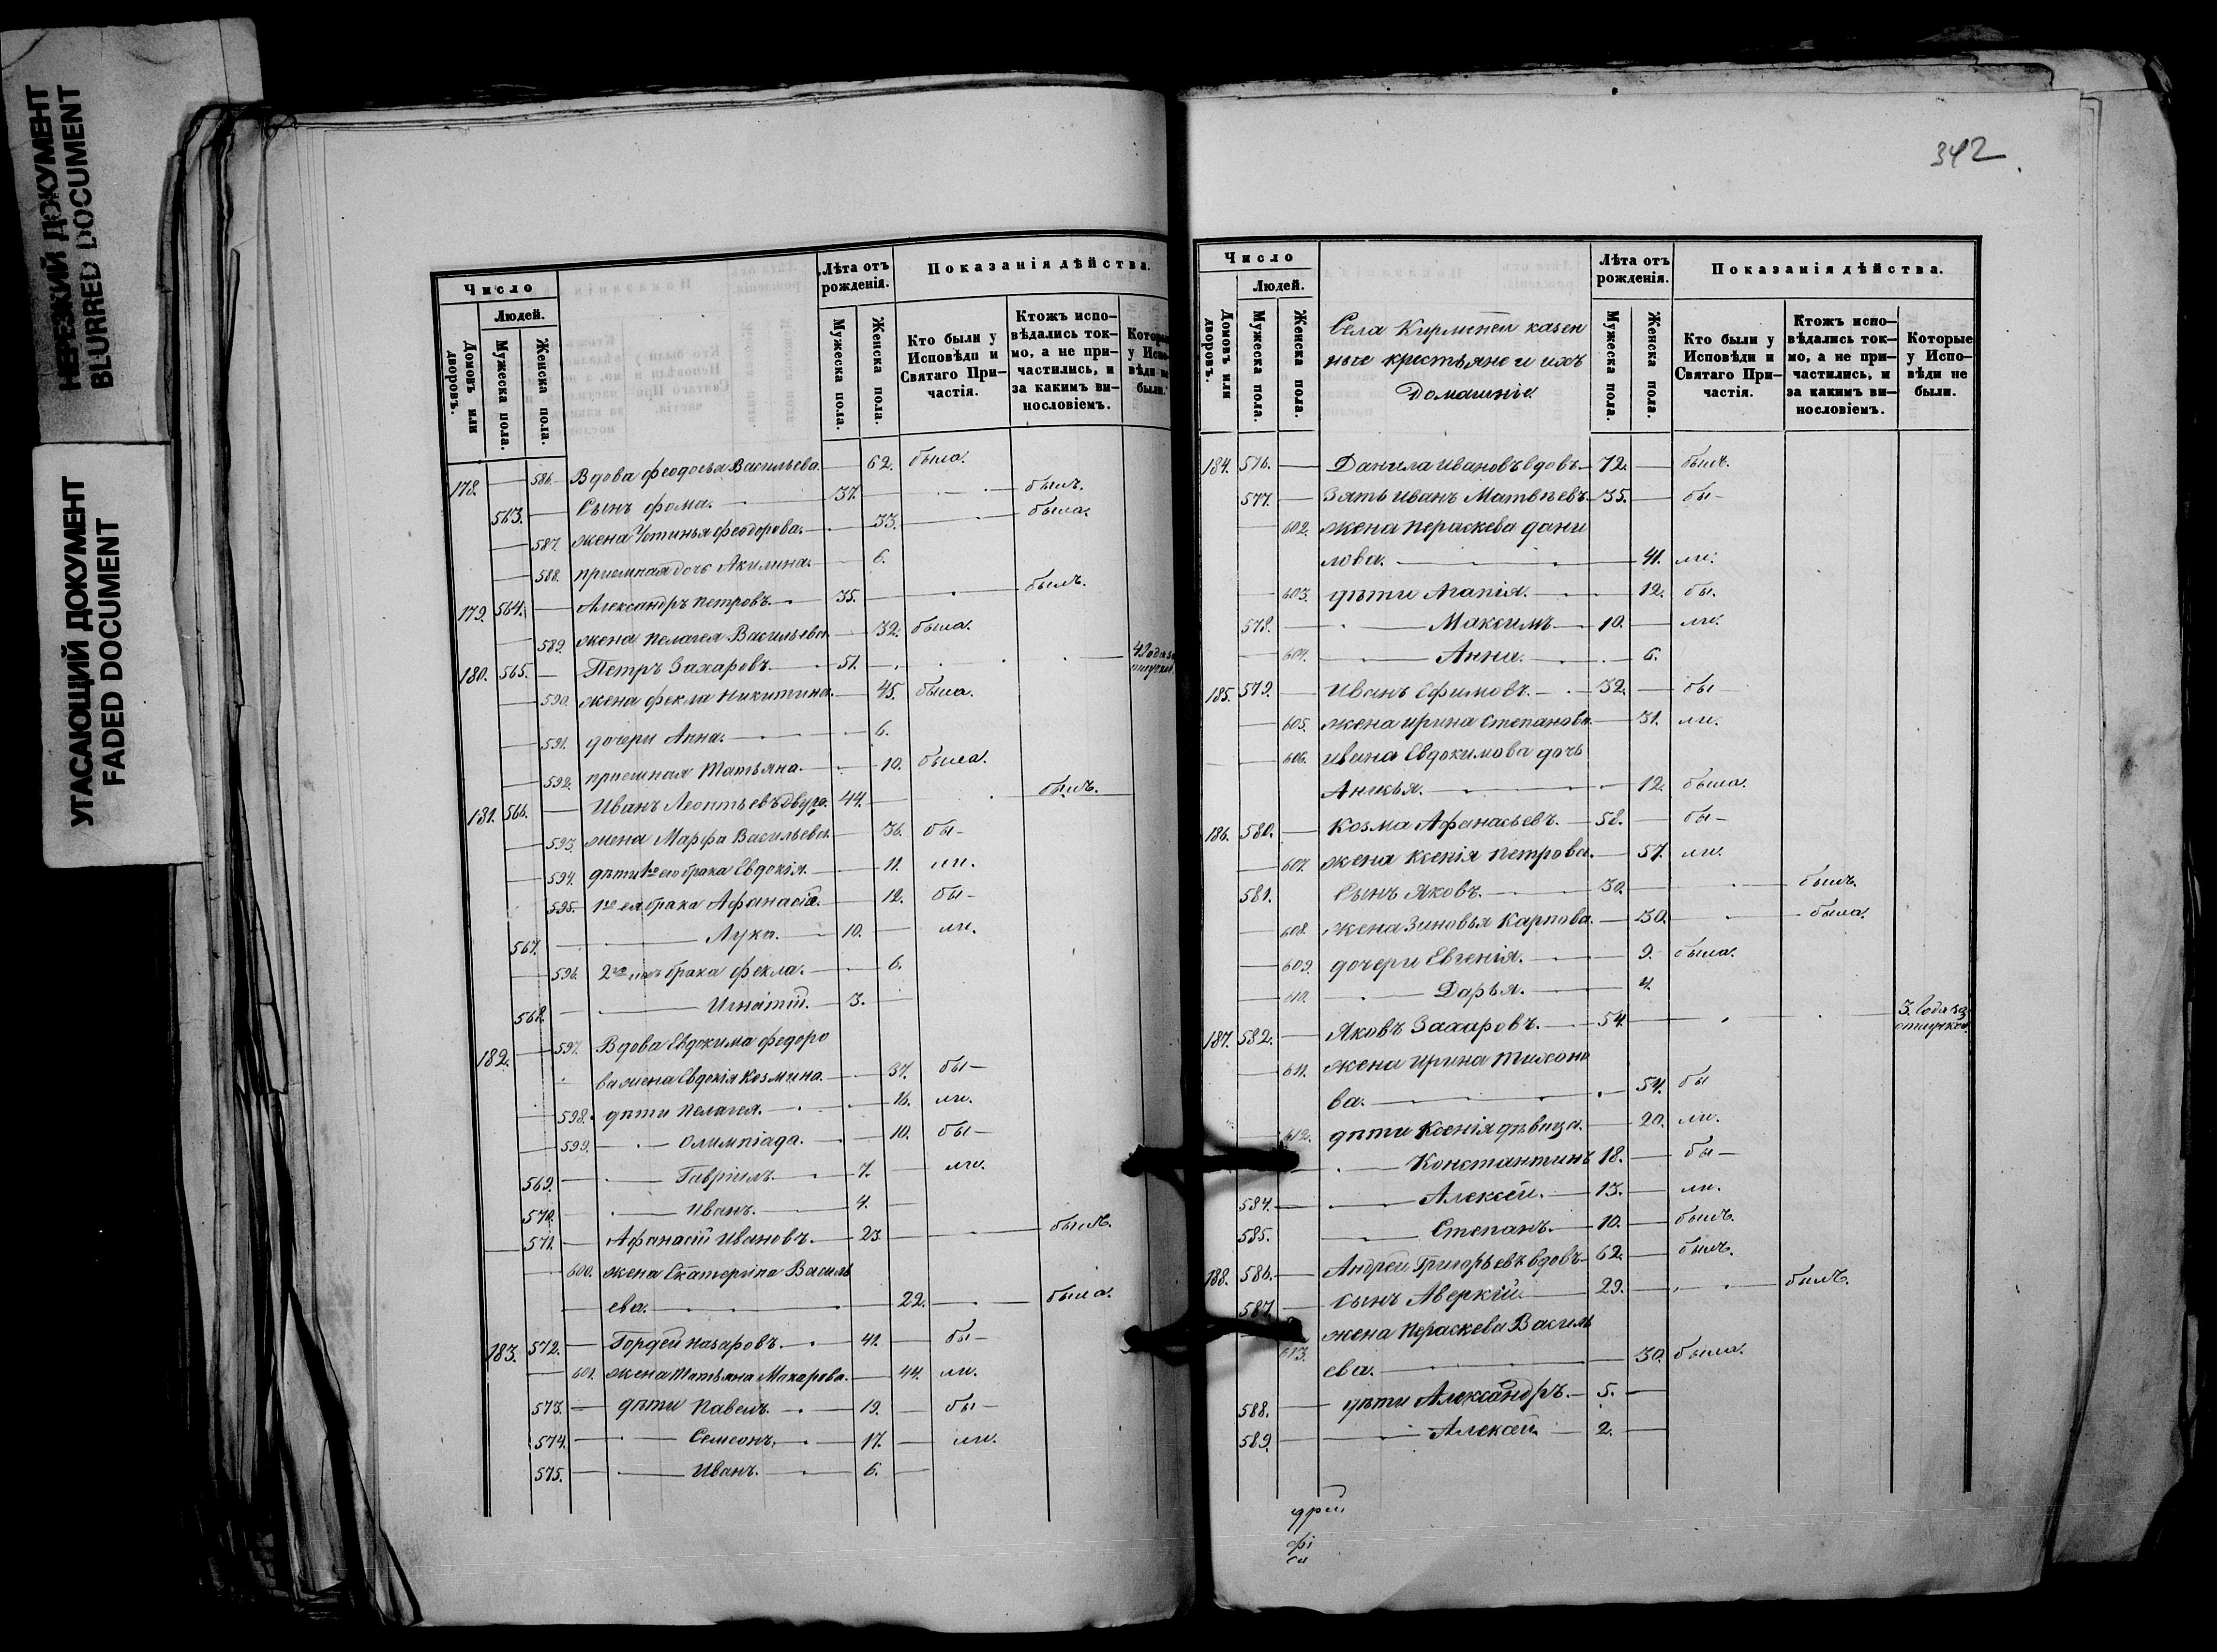 НЕРЕЗКИЙ ДОКУМЕНТ
BLURRED DOCUMENT
УГАСАЮЩИЙ ДОКУМЕНТ
FADED DOCUMENT
Число
Людей.
Домовъ или дворовъ.
Мужеска пола.
Женска пола.
Лѣта отъ рожденія.
Мужеска пола.
Женска пола.
Показанія дѣйства.
Кто были у Исповѣди и Святаго Причастія.
Ктожъ исповѣдались токмо, а не причастились, и за какимъ винословіемъ.
Которые у Исповѣди не были.
178. — 586. Вдова Феодосья Васильева. — 62. была.
563. — Сынъ Фома. — 37. — былъ.
— 587. жена Устинья Феодорова. — 33. — была.
— 588. приемная дочь Акилина. — 6.
179. 564. — Александръ Петровъ. — 35. — былъ.
— 589. жена Пелагея Васильева. — 32. была.
180. 565. — Петръ Захаровъ. — 51. —
— 590. жена Фекла Никитина. — 45. была.
— 591. дочери Анна. — 6.
— 592. приемная Татьяна. — 10. была.
181. 566. — Иванъ Леонтьевъ 44. — былъ.
— 593. жена Марфа Васильева. — 36. бы-
— 594. дѣти 1го его брака Евдокія. — 11. ли.
595. 1го ея брака Афанасія. — 12. бы-
567. — Лука. — 10. — ли.
— 596. 2го ихъ брака Фекла. — 6.
568. — Игнатій. — 3. —
182. — 597. Вдова Евдокима Федоро
ва жена Евдокія Козмина. — 37. бы-
598. дѣти Пелагея. — 16. ли.
599. — Олимпіада. — 10. бы-
569. — Гавріилъ. — 7. — ли.
570. — Иванъ. — 4. —
571. — Афанасій Ивановъ. — 23 — былъ.
— 600. жена Екатерина Василь
ева. — 22. — была.
183. 572. — Гордей Назаровъ. — 41. — бы-
— 601. жена Татьяна Макарова. — 44. ли.
573. — дѣти Павелъ. — 19. — бы-
574. — Семеонъ. — 17. — ли.
575. — Иванъ. — 6. —
342
Число
Людей.
Домовъ или дворовъ.
Мужеска пола.
Женска пола.
Села Кирмтели казен
ные крестьяне и ихъ
домашніе.
Лѣта отъ рожденія.
Мужеска пола.
Женска пола.
Показанія дѣйства.
Кто были у Исповѣди и Святаго Причастія.
Ктожъ исповѣдались токмо, а не причастились, и за какимъ винословіемъ.
Которые у Исповѣди не были.
184. 576. — Данила Ивановъ вдовъ. — 72. — былъ.
577. — Зять Иванъ Матвѣевъ. 35. — бы-
— 602. жена Пераскева Дани
лова. — 41. ли.
— 603. дѣти Агапія. — 12. бы.
578. — Максимъ. — 10. — ли.
— 604. — Анна. — 6.
185. 579. — Иванъ Ефимовъ. — 32. — бы
— 605. жена Ирина Степанова. — 31. ли.
— 606. Ивана Евдокимова дочь
Анисья. — 12. была.
186. 580. — Козма Афанасьевъ. — 58. — бы-
— 607. жена Ксенія Петрова. — 57. ли.
581. Сынъ Яковъ. — 30. — былъ.
— 608. жена Зиновья Карпова. — 30. — была.
— 609. дочери Евгенія. — 9. была.
— 610. — Дарья. — 4.
187. 582. — Яковъ Захаровъ. — 54. — 3. года въ отлучке.
— 611. жена Ирина Тихоно
ва. — 54. бы
— 612. дѣти Ксенія дѣвица. — 20. ли.
— Константинъ 18. — бы-
584. — Алексѣй. — 13. — ли.
585. — Степанъ. — 10. — былъ.
188. 586. — Андрей Григорьевъ вдовъ. — 62. — былъ.
587. — сынъ Аверкій. — 29. — былъ.
613. жена Пераскева Василь
ева. — 30. была.
588. — дѣти Александръ. — 5. —
589. — Алексѣй. — 2. —